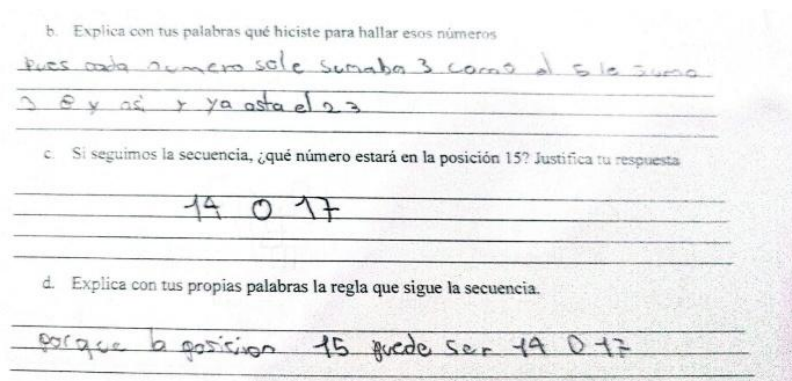 b. Explica con tus palabras qué hiciste para hallar esos números
Pues cada numero sole sumaba 3 como al 5 le sumo
3 8 y asi y ya asta el 23
c. Si seguimos la secuencia, ¿qué número estará en la posición 15? Justifica tu respuesta
14 O 17
d. Explica con tus propias palabras la regla que sigue la secuencia.
porque la posicion 15 puede ser 14 O 17